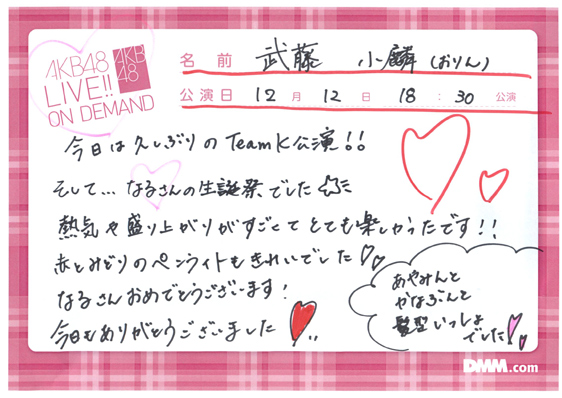 AKB48
LIVE!!
ON DEMAND
AKB
48
名前 武藤 小麟(おりん)
公演日 12月12日 18:30公演
今日は久しぶりのTeamK公演!!
そして…なるさんの生誕祭でした
熱気や盛り上がりがすごくてとても楽しかったです!!
赤とみどりのペンライトもきれいでした
なるさんおめでとうございます!
今日もありがとうございました
あやみんと
かなぶんと
髪型いっしょ
でした
DMM.com